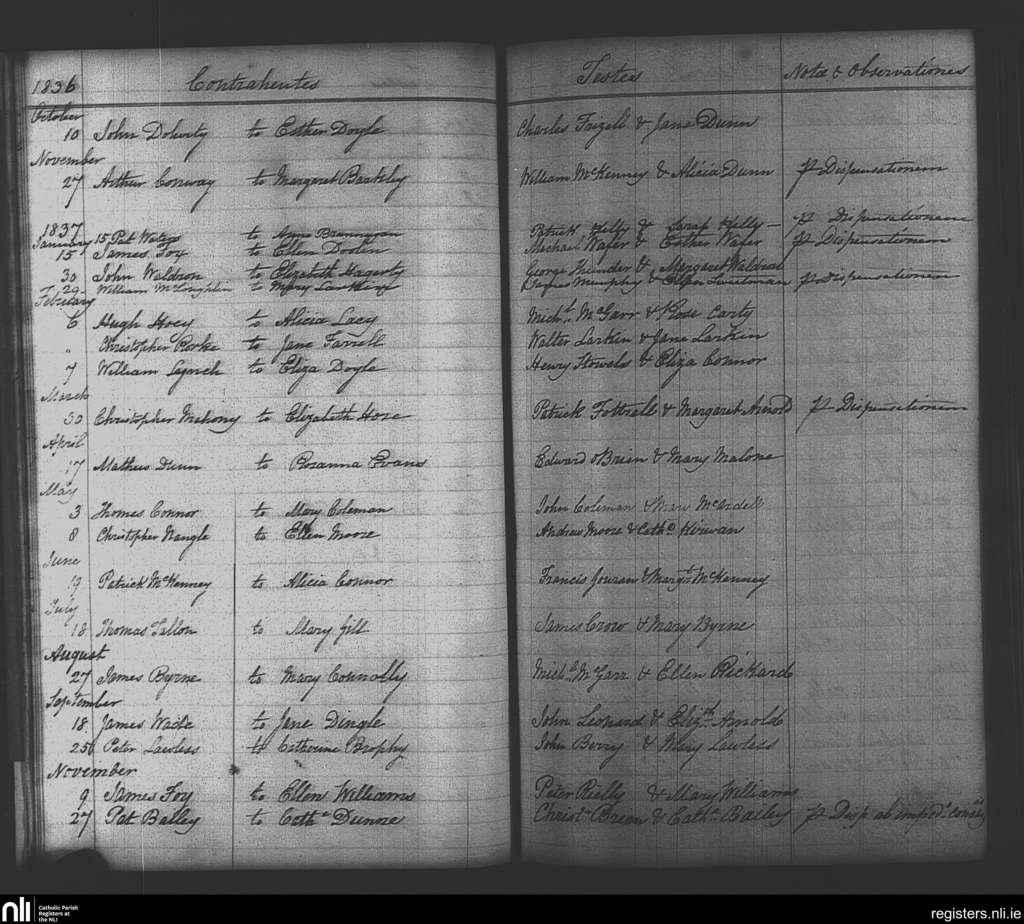 1836 Contrahentes Testes Notæ & Observationes
October
10 John Doherty to Esther Doyle Charles Frizell & Jane Dunn
November
27 Arthur Conway to Margaret Barkley William McKenney & Alicia Dunn p Dispensationem
1837
January 15 Pat Waters to Anne Brannegan Patrick Kelly & Sarah Kelly p Dispensationem
15 James Foy to Ellen Dolen Michael Wafer & Esther Wafer p Dispensationem
30 John Waldron to Elizabeth Hagerty George Thunder & Margaret Waldron
29 William McLoughlin to Mary James Murphy & p Dispensationem
February
6 Hugh Hoey to Alicia Lacy Michl. McGarr & Rose Carty
" Christopher Rorke to Jane Farrell Walter Larkin & Jane Larkin
7 William Lynch to Eliza Doyle Henry Stowels & Eliza Connor
March
30 Christopher Mahony to Elizabeth Hore Patrick Fottrell & Margaret Arnold p Dispensationem
April
17 Mathew Dunn to Rosanna Evans Edward OBrien & Mary Malone
May
3 Thomas Connor to Mary Coleman John Coleman & Mary McArdell
8 Christopher Nangle to Ellen Moore Andrew Moore & Cathe. Kirwan
June
19 Patrick McKenney to Alicia Connor Francis & Margt. McKenney
July
18 Thomas Fallon to Mary Gill James Crow & Mary Byrne
August
27 James Byrne to Mary Connolly Michl. McGarr & Ellen Rickard
September
18 James Wade to Jane Dingle John Leonard & Elizth. Arnold
25 Peter Lawless to Catherine Brophy John Berry & Mary Lawless
November
9 James Foy to Ellen Williams Peter Rielly & Mary Williams
27 Pat Bailey to Cathe. Dunne Christr. Brien & Cathe. Bailey p Disp. ab imped.
nli Catholic Parish
Registers at
the NLI
registers.nli.ie